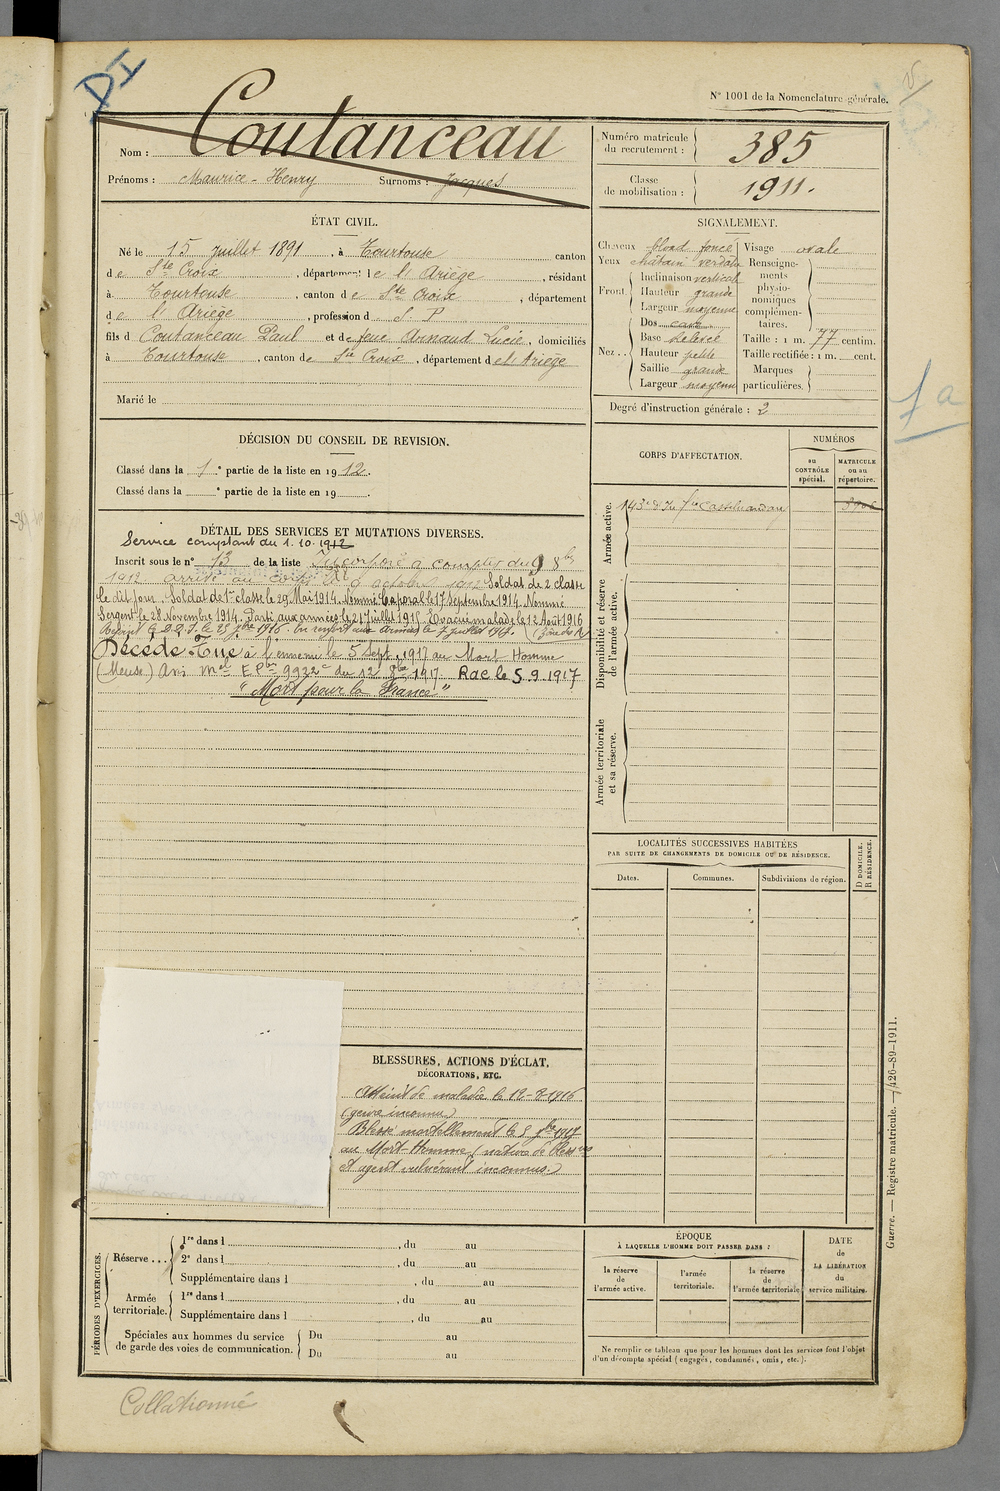 DI
N° 1001 de la Nomenclature générale.
Nom : Coutanceau
Prénoms : Maurice - Henry Surnoms : Jacques
Numéro matricule du recrutement : 385
Classe de mobilisation : 1911.
ÉTAT CIVIL.
Né le 15 juillet 1891, à Tourtouse canton
de Ste Croix, département de l'Ariège, résidant
à Tourtouse, canton de Ste Croix, département
de l'Ariège, profession d S. P
fils d Coutanceau Paul et de feue Arnaud Lucie, domiciliés
à Tourtouse, canton de Ste Croix, département de l'Ariège
Marié le
SIGNALEMENT.
Cheveux blond foncé
Yeux châtain verdâtre
Front Inclinaison vertical
Hauteur grande
Largeur moyenne
Nez Dos cave
Base relevée
Hauteur petite
Saillie grande
Largeur moyenne
Visage ovale
Renseignements physionomiques complémentaires.
Taille : 1 m. 77 centim.
Taille rectifiée : 1 m. cent.
Marques particulières.
Degré d'instruction générale : 2
1a
DÉCISION DU CONSEIL DE REVISION.
Classé dans la 1e partie de la liste en 1912.
Classé dans la e partie de la liste en 19
DÉTAIL DES SERVICES ET MUTATIONS DIVERSES.
Service comptant du 1. 10. 1912
Inscrit sous le n° 13 de la liste Incorporé à compter du 9 8bre
1912 arrivé au corps octobre 1912 Soldat de 2 classe
le dit jour. Soldat de 1re classe le 29 Mai 1914. Nommé Caporal le 17 Septembre 1914. Nommé
Sergent le 28 Novembre 1914. Parti aux armées le 21 Juillet 1915. Evacué malade le 12 Août 1916
En renfort aux Armées le 7 juillet 1917.
Décédé Tué à l'ennemi le 5 Sept. 1917 au Mort Homme
(Meuse) Avis mel 9932 du 12 1917 Rac le 5.9.1917
"Mort pour la France"
CORPS D'AFFECTATION.
NUMÉROS
au CONTRÔLE spécial.
MATRICULE ou au répertoire.
Armée active.
143e d'Inf rie Castelnaudary
Disponibilité et réserve de l'armée active.
Armée territoriale et sa réserve.
LOCALITÉS SUCCESSIVES HABITÉES
PAR SUITE DE CHANGEMENTS DE DOMICILE OU DE RÉSIDENCE.
Dates. Communes. Subdivisions de région. D DOMICILE. R RÉSIDENCE.
BLESSURES, ACTIONS D'ÉCLAT,
DÉCORATIONS, ETC.
Atteint de maladie le 12-8-1916
(genre inconnu)
Blessé mortellement le 5 7bre 1917
au Mort-Homme (nature de blessures
et agent vulnérant inconnus.)
PÉRIODES D'EXERCICES.
Réserve ... 1re dans l , du au
2e dans l , du au
Supplémentaire dans l , du au
Armée territoriale. 1re dans l , du au
Supplémentaire dans l , du au
Spéciales aux hommes du service de garde des voies de communication. Du au
Du au
ÉPOQUE
À LAQUELLE L'HOMME DOIT PASSER DANS :
la réserve de l'armée active.
l'armée territoriale.
la réserve de l'armée territoriale.
DATE de LA LIBÉRATION du service militaire.
Ne remplir ce tableau que pour les hommes dont les services font l'objet
d'un décompte spécial (engagés, condamnés, omis, etc.).
Guerre. — Registre matricule. — 426-89-1911.
Collationné